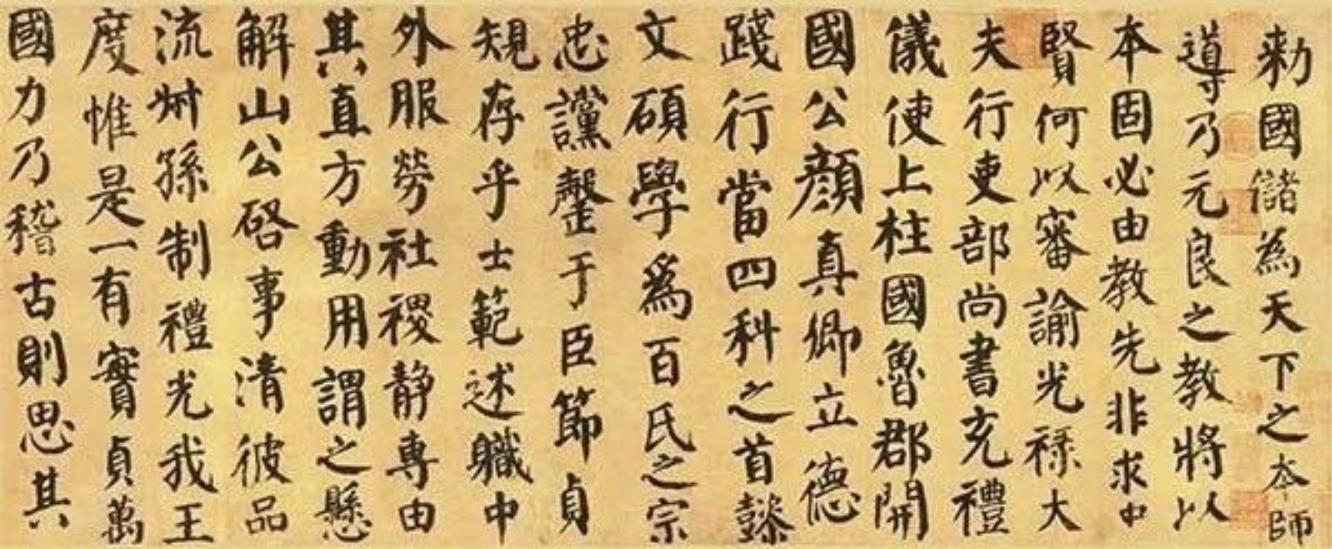 勑國儲為天下之本師
導乃元良之教將以
本固必由教先非求中
賢何以審諭光祿大
夫行吏部尚書充禮
儀使上柱國魯郡開
國公顏真卿立德
踐行當四科之首懿
文碩學爲百氏之宗
忠讜罄于臣節貞
規存乎士範述職中
外服勞社稷静專由
其直方動用謂之懸
解山公啓事清彼品
流叔孫制禮光我王
度惟是一有實貞萬
國力乃稽古則思其